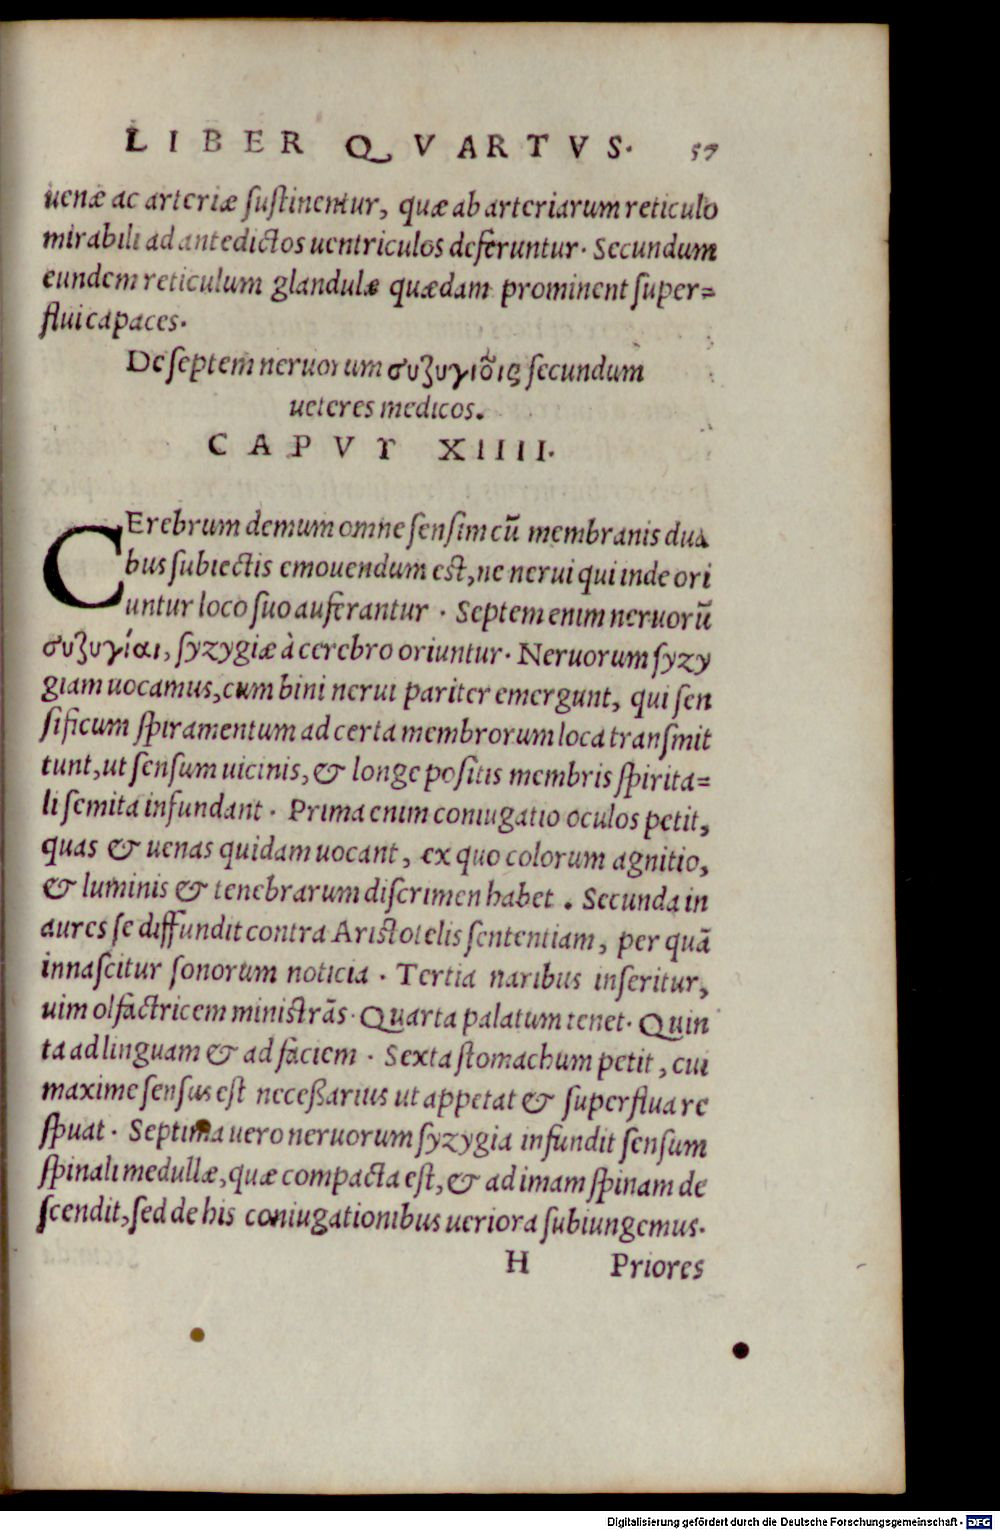 LIBER QVARTVS. 57
uenæ ac arteriæ ſuſtinentur, quæ ab arteriarum reticulo
mirabili ad antedictos uentriculos deferuntur. Secundum
eundem reticulum glandulæ quædam prominent ſuper=
flui capaces.
De ſeptem neruorum συζυγίοις ſecundum
ueteres medicos.
CAPVT XIIII.
CErebrum demum omne ſenſim cũ membranis dua
bus ſubiectis emouendum eſt, ne nerui qui inde ori
untur loco ſuo auferantur. Septem enim neruorũ
συζυγίαι, ſyzygiæ à cerebro oriuntur. Neruorum ſyzy
giam uocamus, cum bini nerui pariter emergunt, qui ſen
ſificum ſpiramentum ad certa membrorum loca tranſmit
tunt, ut ſenſum uicinis, & longe poſitis membris ſpirita=
li ſemita infundant. Prima enim coniugatio oculos petit,
quas & uenas quidam uocant, ex quo colorum agnitio,
& luminis & tenebrarum diſcrimen habet. Secunda in
aures ſe diffundit contra Ariſtotelis ſententiam, per quã
innaſcitur ſonorum noticia. Tertia naribus inſeritur,
uim olfactricem miniſtrãs. Quarta palatum tenet. Quin
ta ad linguam & ad faciem. Sexta ſtomachum petit, cui
maxime ſenſus eſt neceßarius ut appetat & ſuperflua re
ſpuat. Septima uero neruorum ſyzygia infundit ſenſum
ſpinali medullæ, quæ compacta eſt, & ad imam ſpinam de
ſcendit, ſed de his coniugationibus ueriora ſubiungemus.
H Priores
Digitalisierung gefördert durch die Deutsche Forschungsgemeinschaft - DFG